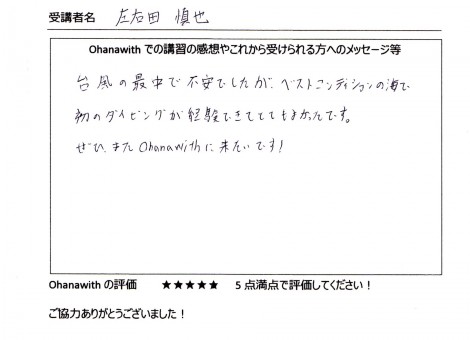 受講者名 左右田 慎也
Ohanawith での講習の感想やこれから受けられる方へのメッセージ等
台風の最中で不安でしたが、ベストコンディションの海で
初のダイビングが経験できてとてもよかったです。
ぜひ、また Ohanawithに来たいです!
Ohanawith の評価 ★★★★★ 5 点満点で評価してください！
ご協力ありがとうございました！